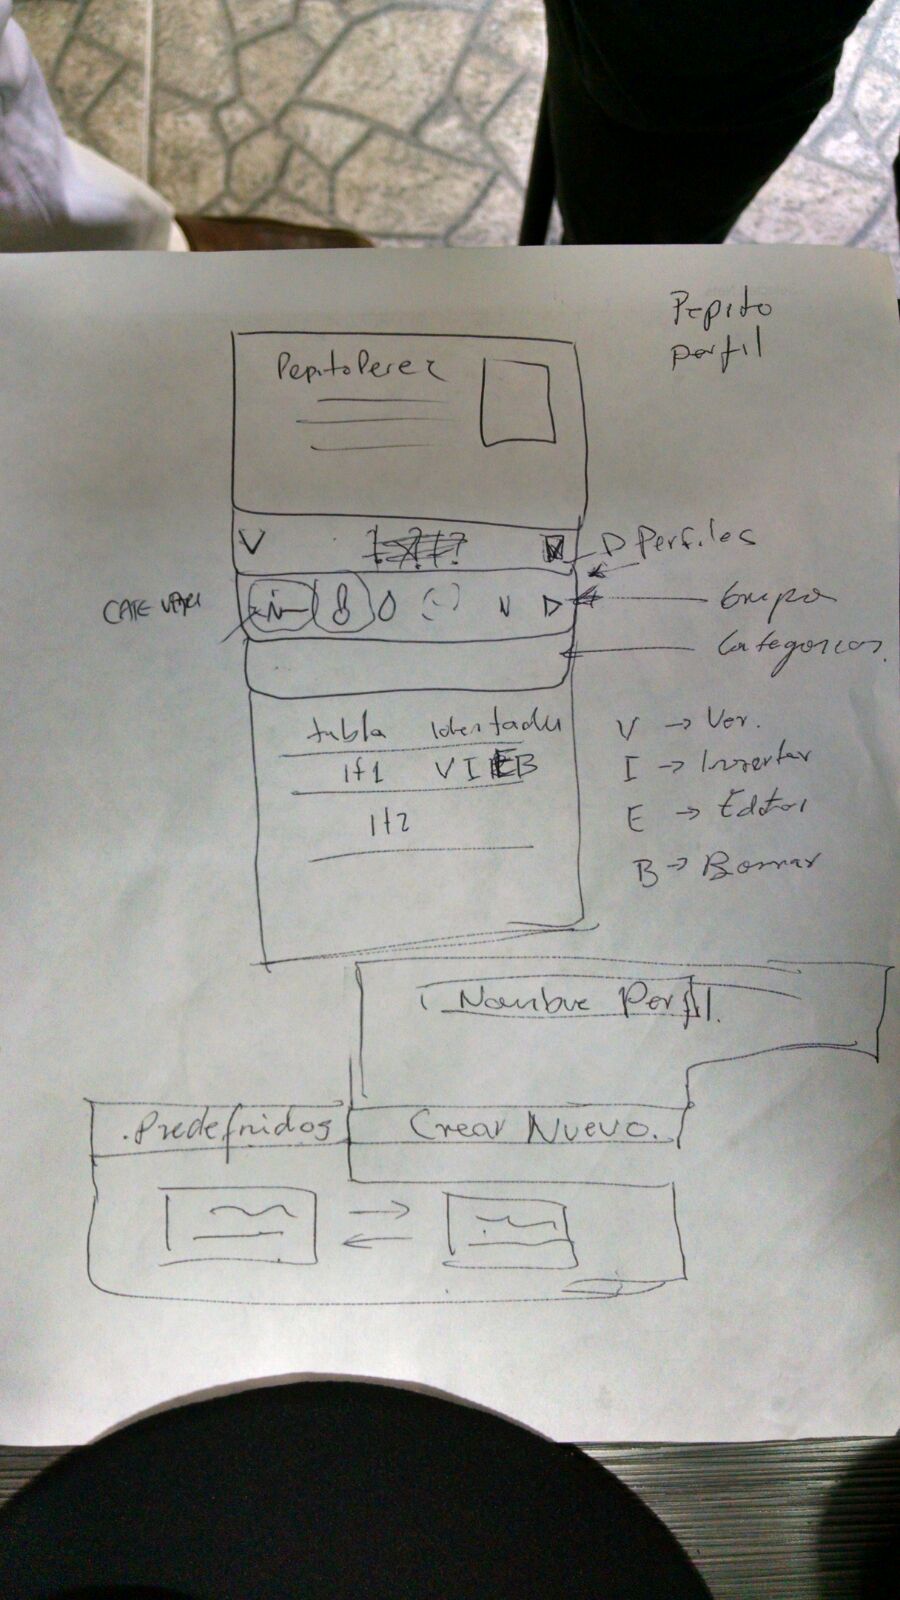 Pepito
perfil
Pepito Perez
V
D Perfiles
V D
Grupo
Categorias.
tabla
V → Ver.
It1 V I E B
I → Insertar
It2
E → Editar
B → Borrar
Nombre Perfil.
.Predefinidos
Crear Nuevo.